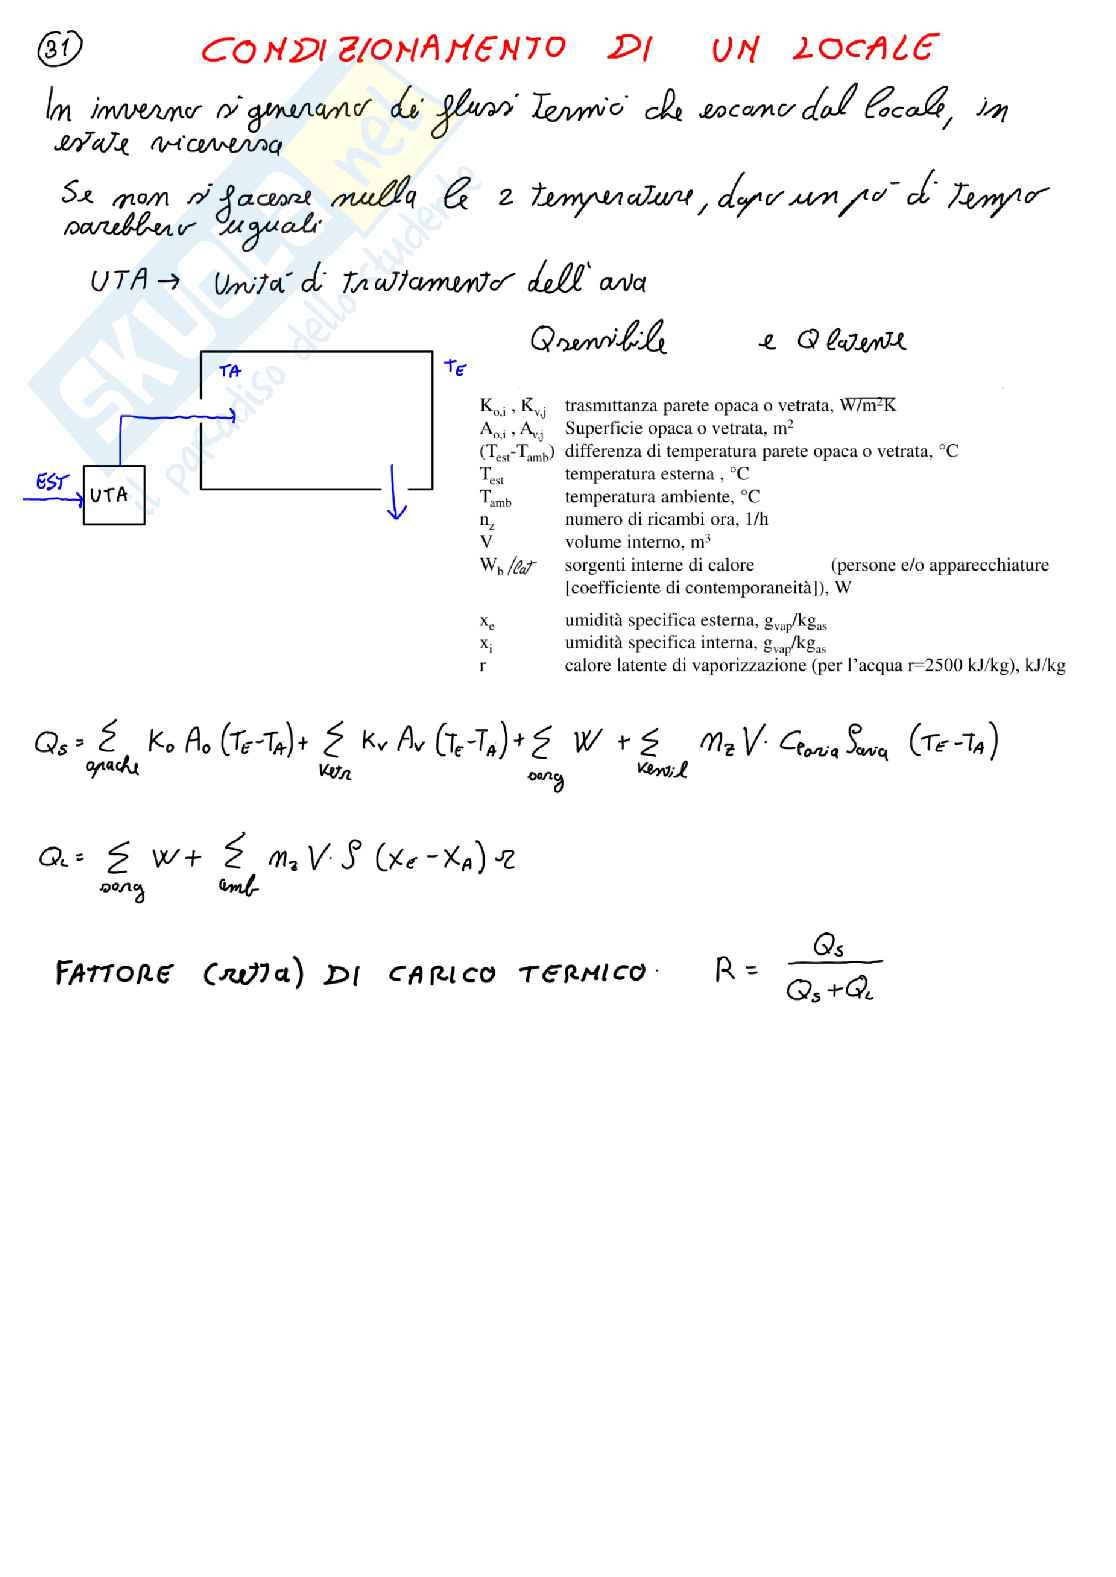 31 CONDIZIONAMENTO DI UN LOCALE
In inverno si generano dei flussi termici che escano dal locale, in
estate viceversa
Se non si facesse nulla le 2 temperature, dopo un pò di tempo
sarebbero uguali
UTA → Unità di trattamento dell'aria
Qsensibile e Q latente
TA TE
EST UTA
K_{o,i} , K_{v,j} trasmittanza parete opaca o vetrata, W/m²K
A_{o,i} , A_{v,j} Superficie opaca o vetrata, m²
(T_{est}-T_{amb}) differenza di temperatura parete opaca o vetrata, °C
T_{est} temperatura esterna , °C
T_{amb} temperatura ambiente, °C
n_z numero di ricambi ora, 1/h
V volume interno, m³
W_h/lat sorgenti interne di calore (persone e/o apparecchiature
[coefficiente di contemporaneità]), W
x_e umidità specifica esterna, g_{vap}/kg_{as}
x_i umidità specifica interna, g_{vap}/kg_{as}
r calore latente di vaporizzazione (per l'acqua r=2500 kJ/kg), kJ/kg
Q_S = Σ_{opache} K_o A_o (T_E-T_A) + Σ_{vetr} K_v A_v (T_E-T_A) + Σ_{sorg} W + Σ_{ventil} n_z V · C_{p aria} ρ_{aria} (T_E-T_A)
Q_L = Σ_{sorg} W + Σ_{amb} n_z V · ρ (X_E - X_A) r
FATTORE (retta) DI CARICO TERMICO. R = Q_S / (Q_S + Q_L)
SKUOLA.net
il paradiso dello studente